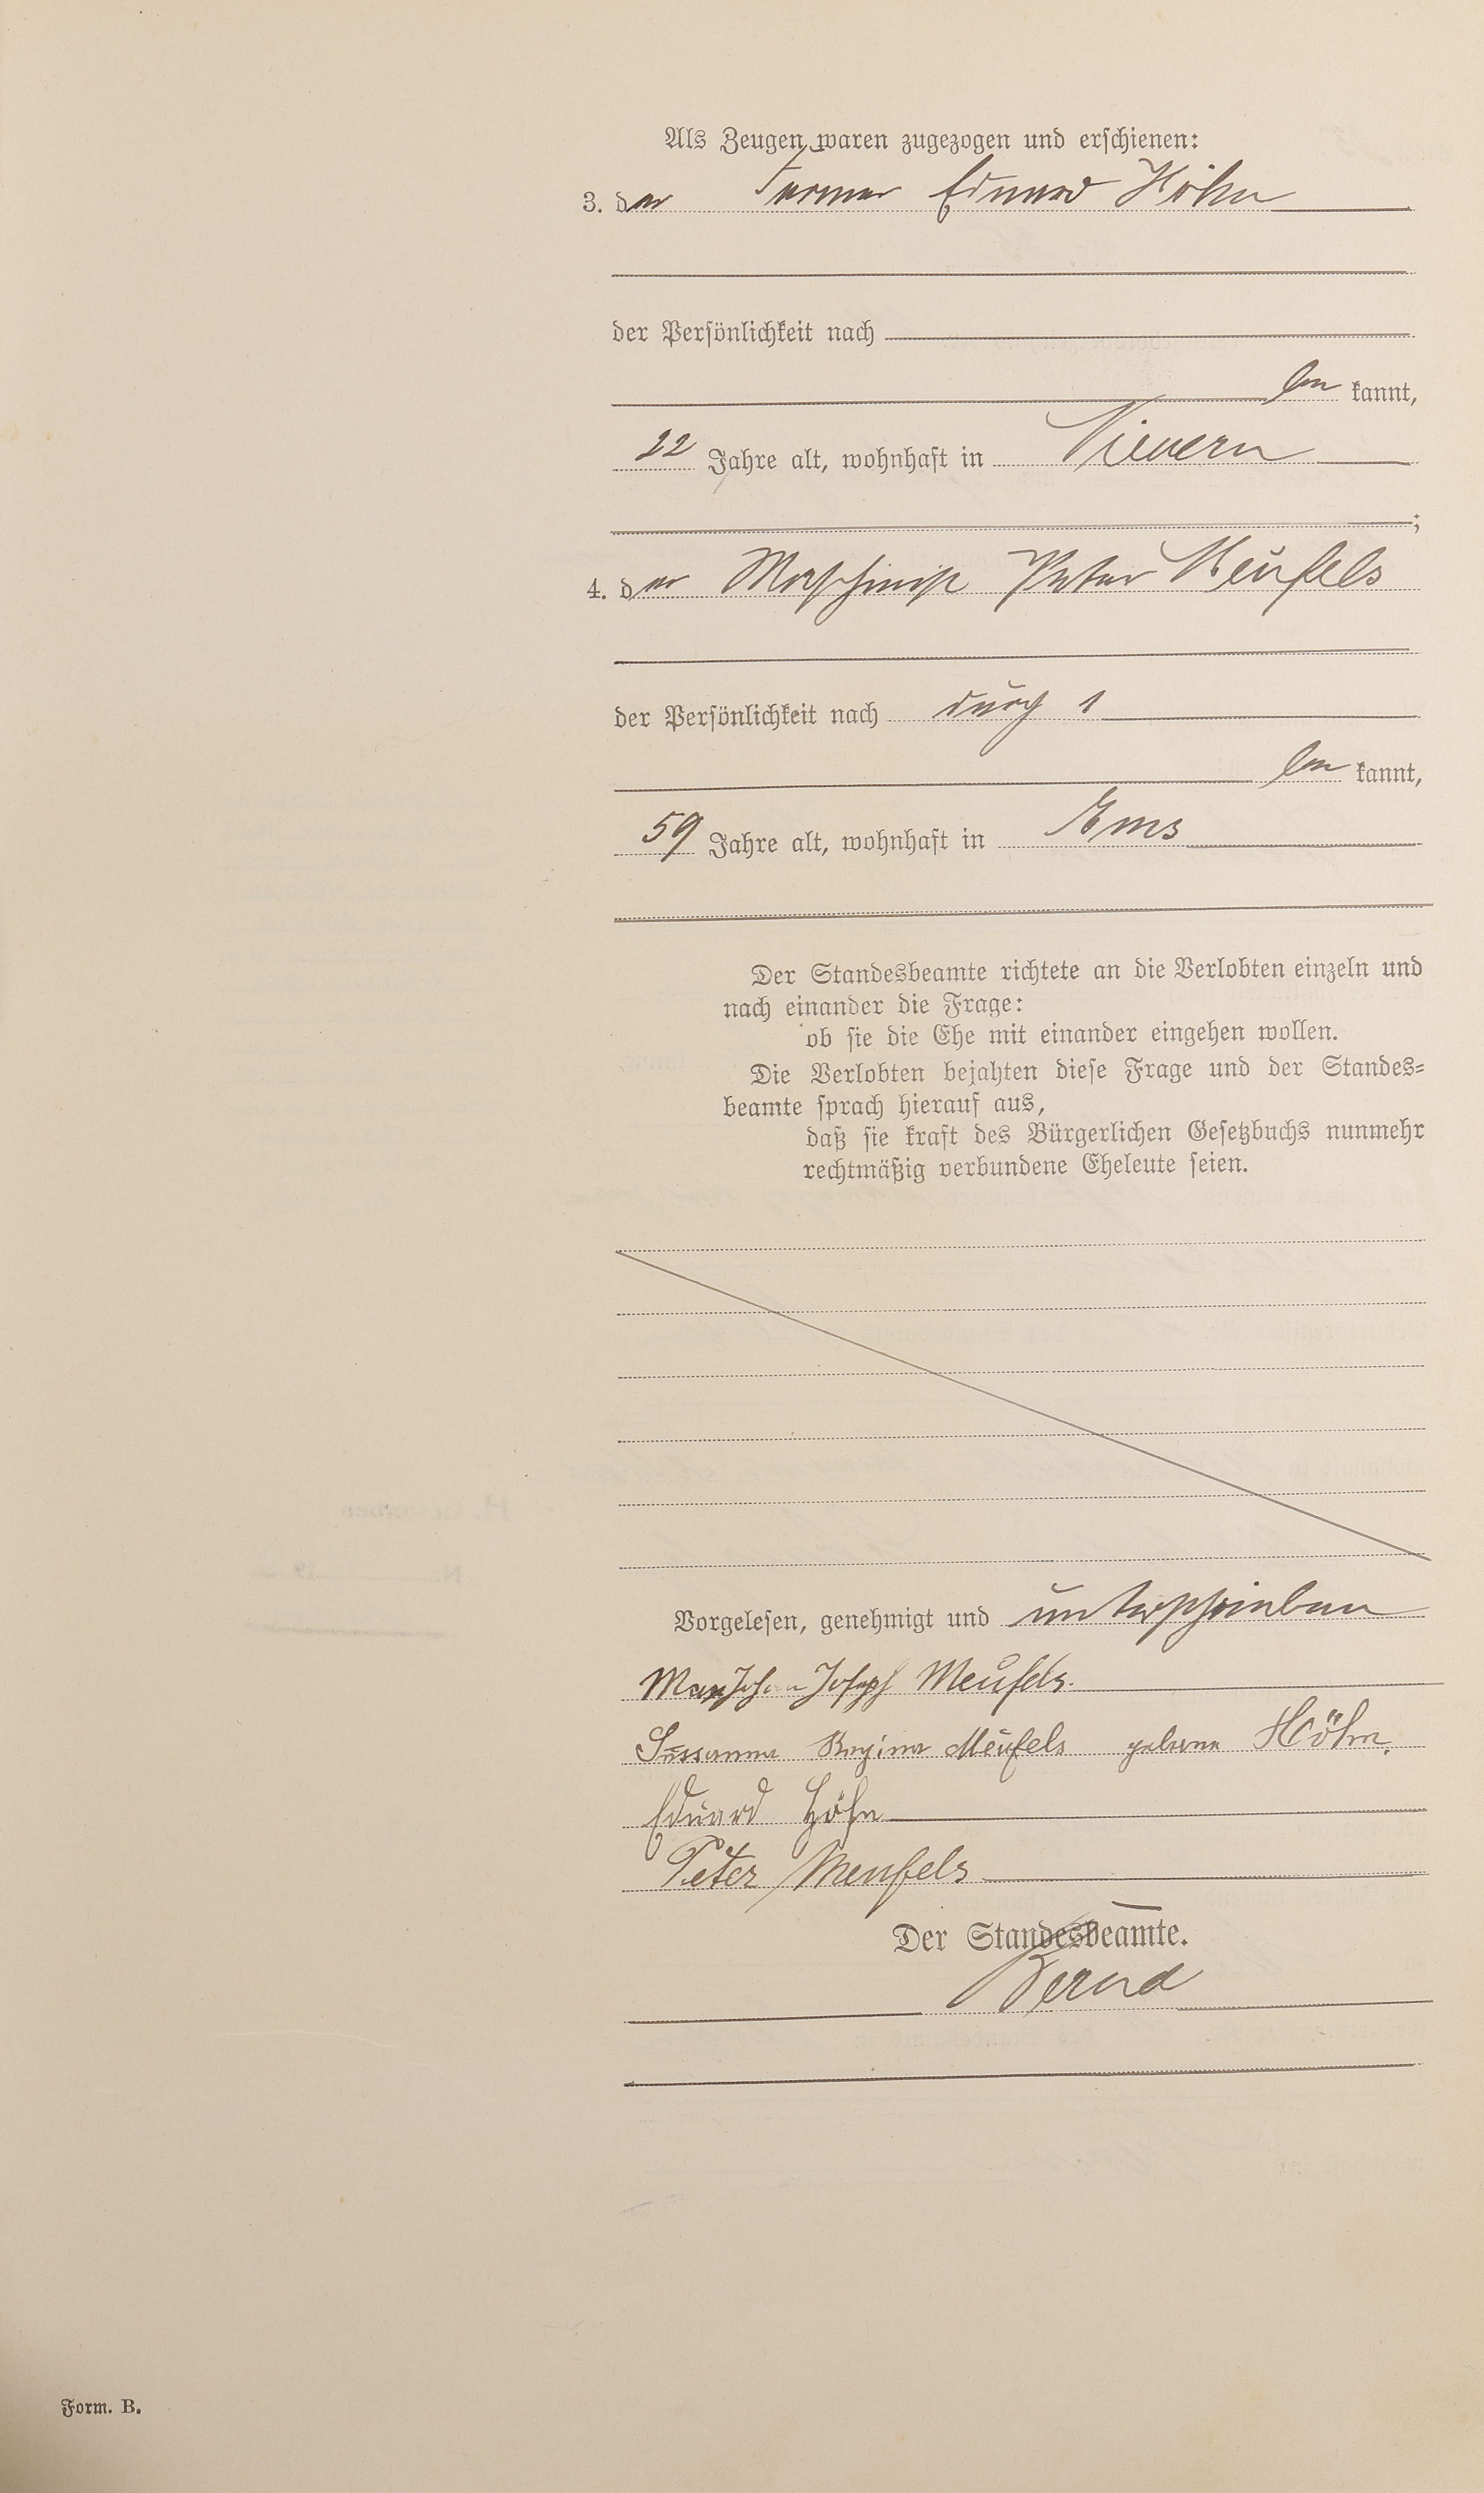 Als Zeugen waren zugezogen und erschienen:
3. der Former Eduard Höhn
der Persönlichkeit nach
be kannt,
22 Jahre alt, wohnhaft in Nievern
;
4. der Maschinist Peter Meufels
der Persönlichkeit nach durch 1
be kannt,
59 Jahre alt, wohnhaft in Ems
Der Standesbeamte richtete an die Verlobten einzeln und
nach einander die Frage:
ob sie die Ehe mit einander eingehen wollen.
Die Verlobten bejahten diese Frage und der Standes=
beamte sprach hierauf aus,
daß sie kraft des Bürgerlichen Gesetzbuchs nunmehr
rechtmäßig verbundene Eheleute seien.
Vorgelesen, genehmigt und unterschrieben
Max Johann Joseph Meufels.
Sussanna Regina Meufels geborne Höhn.
Eduard Höhn
Peter Meufels
Der Standesbeamte.
Bernd
Form. B.